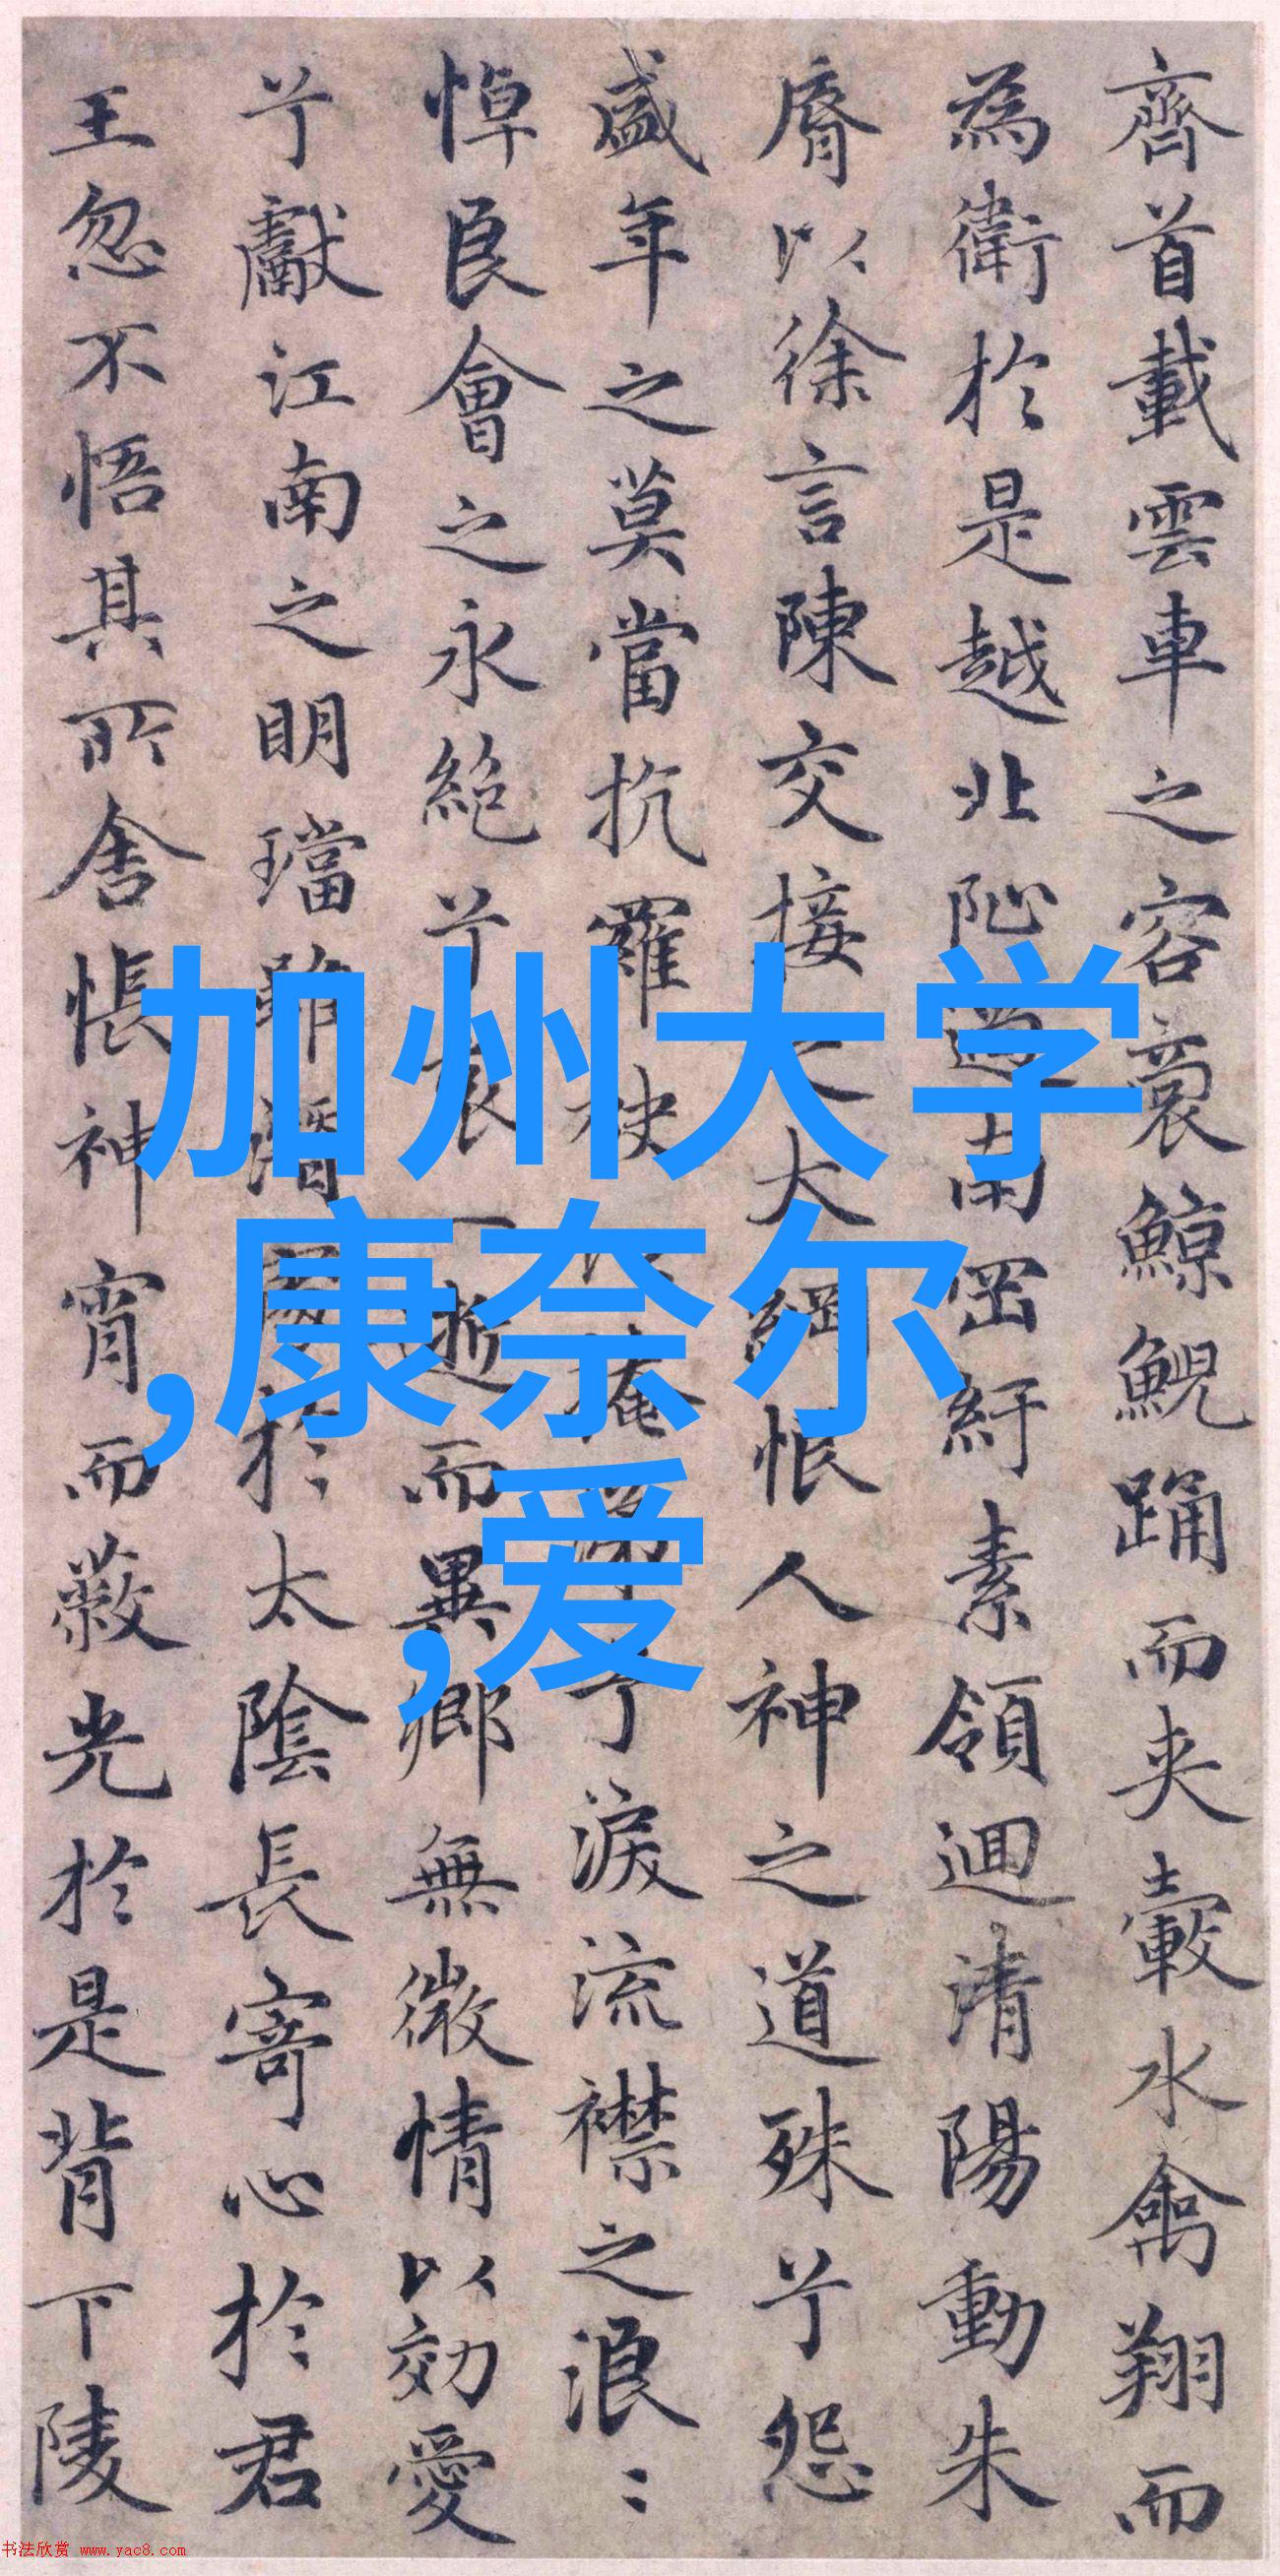 齊首載雲車之容裔鯨鯢踊而夾轂水禽翔而
為衛於是越北阯過南岡紆素領迴清陽動朱
脣以徐言陳交接之大綱恨人神之道殊兮怨
盛年之莫當抗羅袂掩涕兮淚流襟之浪〻
悼良會之永絕兮哀一逝而異鄉無微情以効愛
兮獻江南之明璫雖潛處於太陰長寄心於君
王忽不悟其所舍悵神宵而蔽光於是背下陵
加州大学
,康奈尔
,爱
书法欣赏 www.yac8.com